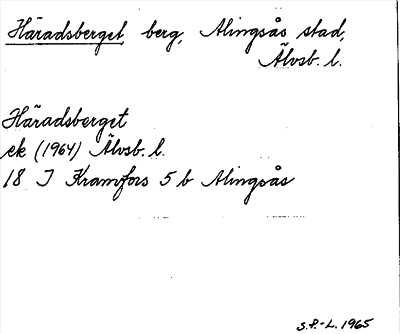 Häradsberget, berg, Alingsås stad,
Älvsb. l.
Häradsberget
ek (1964) Älvsb. l.
18 J Kramfors 5 b Alingsås
S.P.-L. 1965